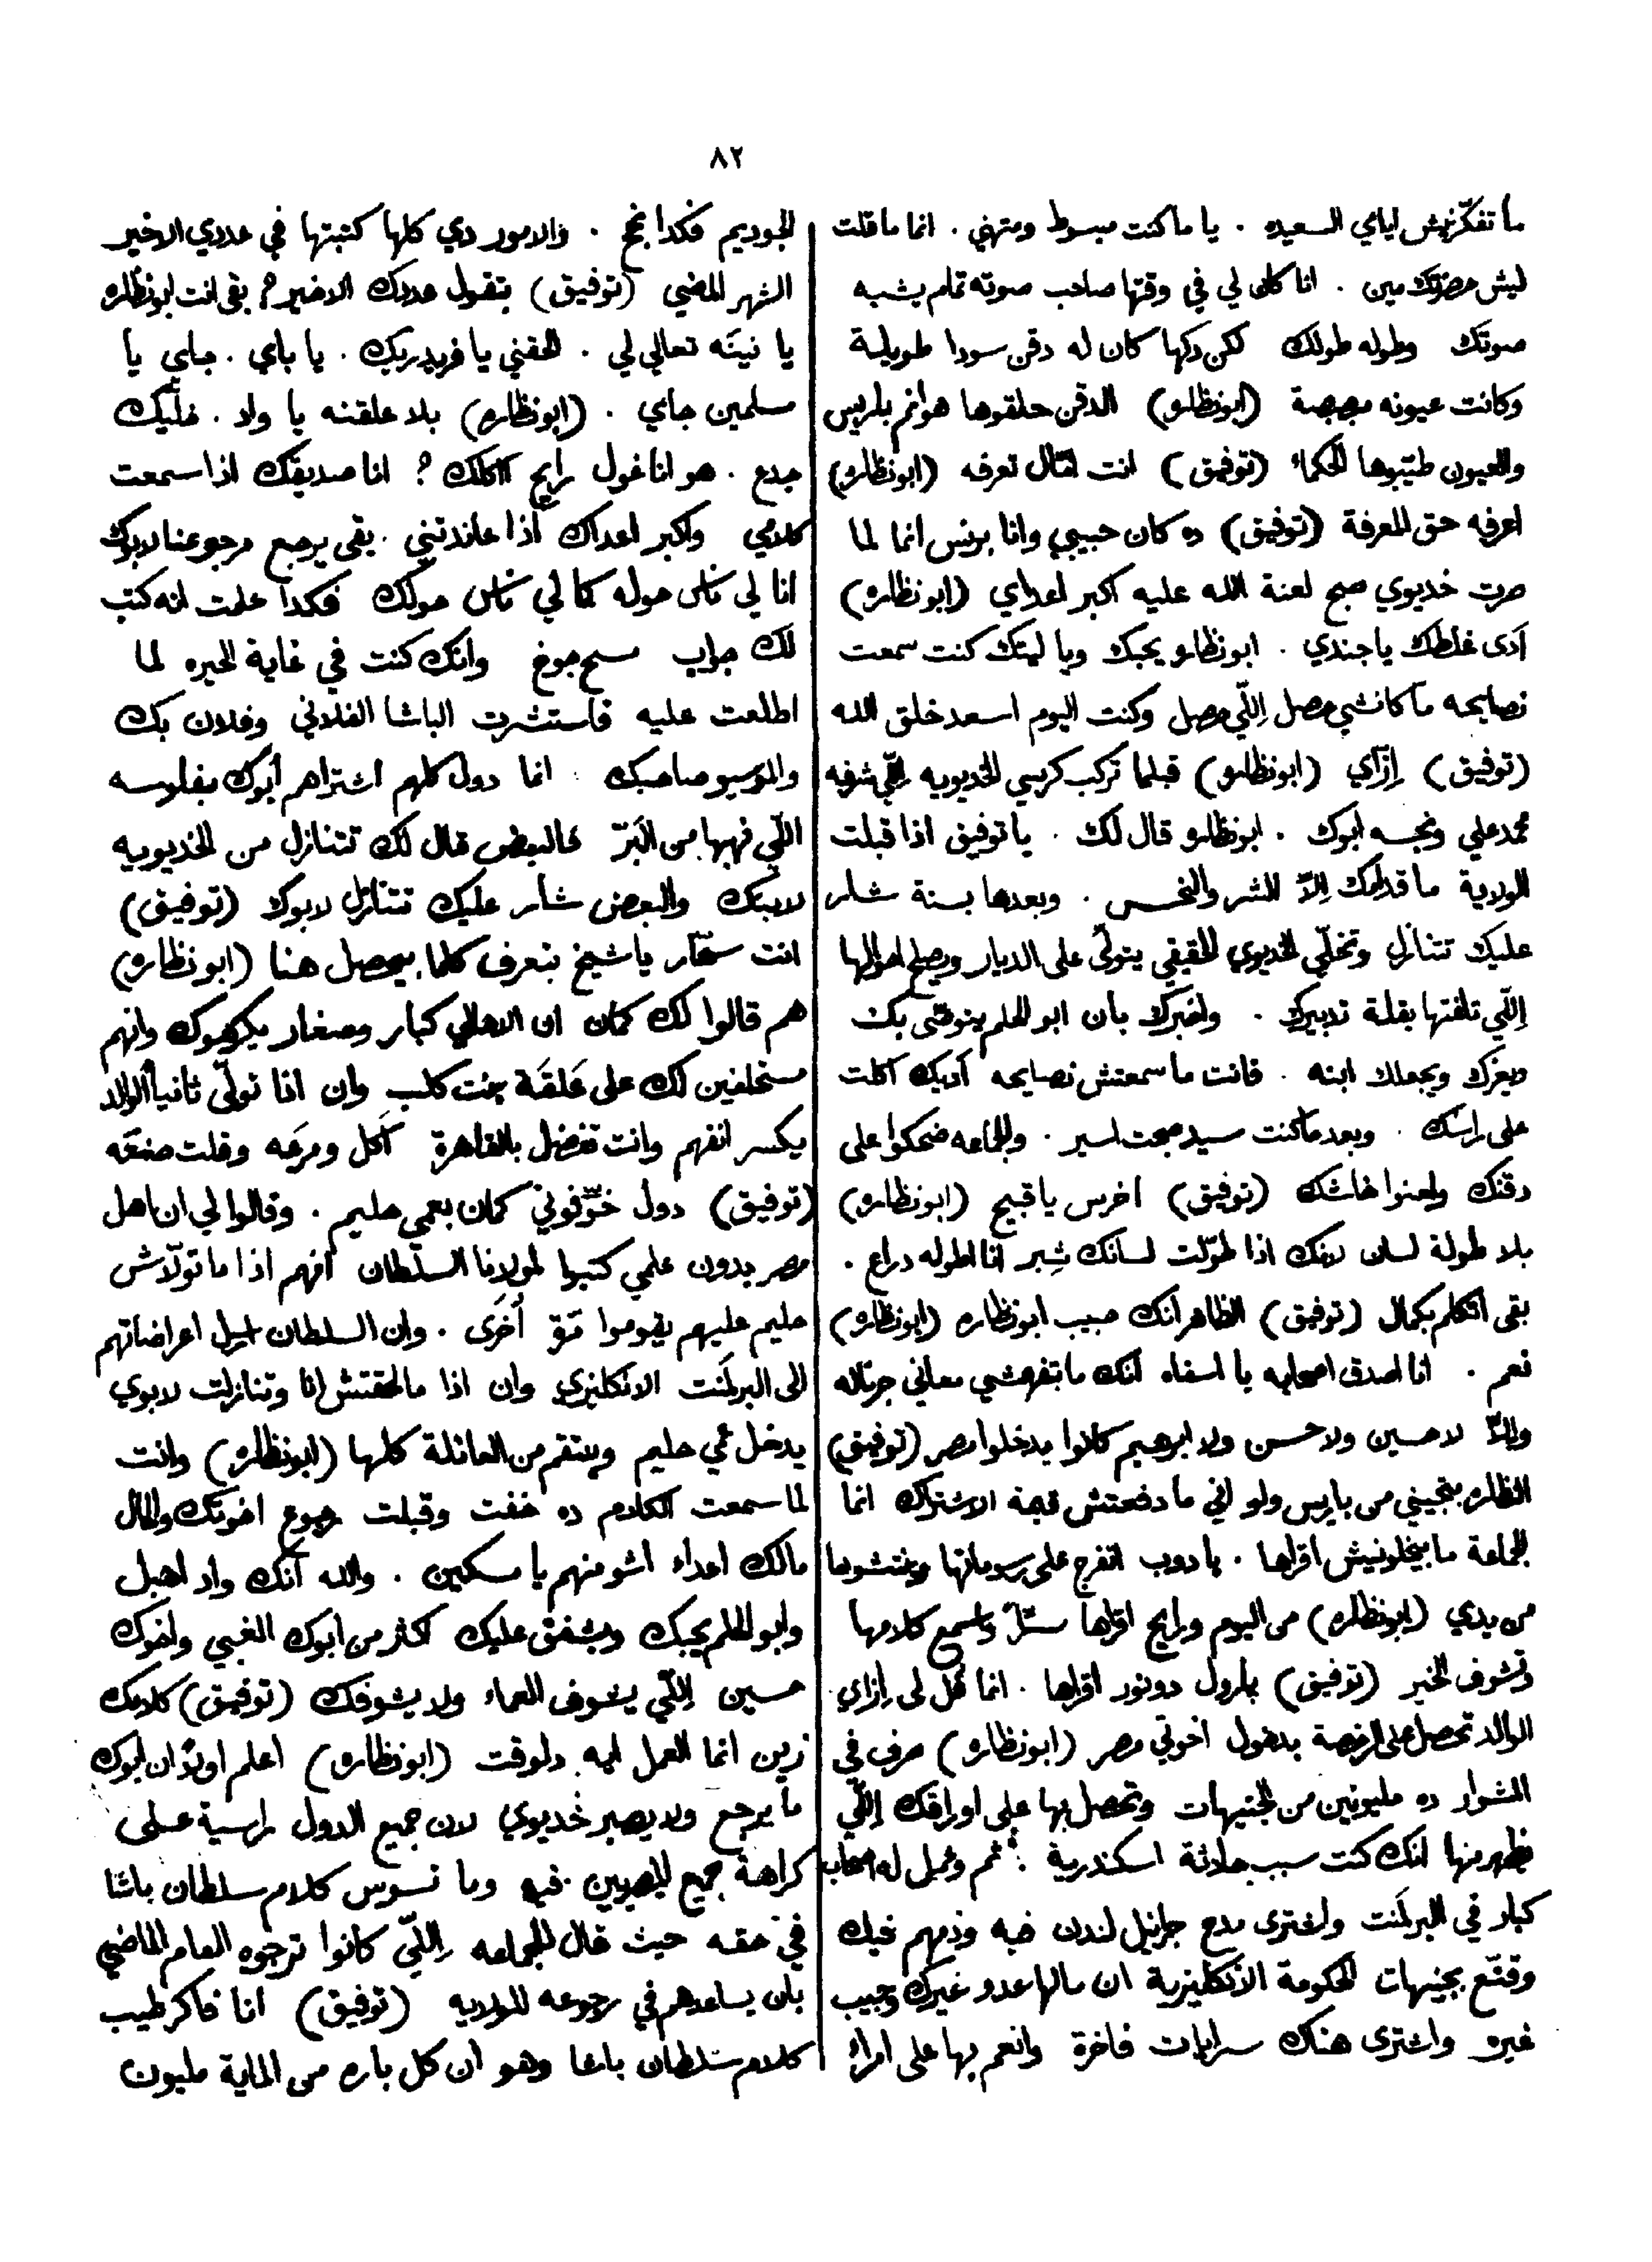 ٨٢
ما تفكّرنيش ليالي السعيده . يا ما كنت مبسوط ومتهني . انما ما قلت
ليش حضرتك مين . انا كان لي في وقتها صاحب صوته تمام يشبه
صوتك وطوله طولك لكن دكها كان له دقن سودا طويلة
وكانت عيونه مبصبصة (ابونظاره) الدقن حلقوها هوانم باريس
والعيون طيّبوها الحكماء (توفيق) انت امّال تعرفه (ابونظاره)
اعرفه حق المعرفة (توفيق) ده كان حبيبي وانا برنس انما لما
صرت خديوي صبح لعنة الله عليه اكبر اعداي (ابونظاره)
آدى غلطك يا جندي . ابونظاره يحبك ويا ليتك كنت سمعت
نصايحه ما كانشي حصل اللّي حصل وكنت اليوم اسعد خلق الله
(توفيق) إزّاي (ابونظاره) قبلما تركب كرسي الخديويه اللّي شرفه
محمد علي ونجسه ابوك . ابونظاره قال لك . يا توفيق اذا قبلت
الولاية ما قدامك إلاّ الشر والنحس . وبعدها بسنة شار
عليك تتنازل وتخلّي الخديوي الحقيقي يتولّى على الديار ويصلح احوالها
اللّي تلفتها بقلة تدبيرك . واخبرك بان ابو الحلم يتوصّى بك
ويعزك ويجعلك ابنه . فانت ما سمعتش نصايحه آديك اكلت
على راسك . وبعد ما كنت سيد صبحت اسير . والجماعه ضحكوا على
دقنك ولعنوا خاشك (توفيق) اخرس يا قبيح (ابونظاره)
بلا طولة لسان لانك اذا طوّلت لسانك شِبر انا اطوله دراع .
بقى اتكلم بكمال (توفيق) الظاهر انك حبيب ابونظاره (ابونظاره)
نعم . انا اصدق اصحابه يا اسفاه انك ما بتفهمشي معاني جرناله
وإلاّ لا حسين ولا حسن ولا ابرهيم كانوا يدخلوا مصر (توفيق)
النظاره بتجيني من باريس ولو اني ما دفعتش قيمة الاشتراك انما
الجماعة ما بيخلونيش اقراها . يا دوب اتفرج على رسوماتها وينتشوها
من يدي (ابونظاره) من اليوم ورايح اقراها سرّاً واسمع كلامها
وتشوف الخير (توفيق) بارول دونور اقراها . انما قُل لى إزاي
الوالد تحصل على الرخصة بدخول اخوتي مصر (ابونظاره) صرف في
المشوار ده مليونين من الجنيهات وتحصل بها على اوراقك اللّي
ظهر منها انك كنت سبب حادثة اسكندرية . ثم وعمل له اصحاب
كبار في البرلمَنت واشترى مدح جرانيل لندن فيه وذمهم فيك
وقنّع بجنيهات الحكومة الانكليزية ان مالها عدو غيرك وحبيب
غيره واشترى هناك سرايات فاخرة وانعم بها على امراء
الجوديم فكدا نجح . والامور دي كلها كتبتها في عددي الاخير
الشهر الماضي (توفيق) بتقول عددك الاخير؟ بقى انت ابونظاره
يا نينَه تعالي لي . الحقني يا فريدريك . يا باي . جاي يا
مسلمين جاي . (ابونظاره) بلا علقنه يا ولد . خلّيك
جدع . هو انا غول رايح آكلك ؟ انا صديقك اذا سمعت
كلامي واكبر اعداك اذا عاندتني . بقى يرجع مرجوعنا لابوك
انا لي ناس حوله كما لي ناس حولك فكدا علمت انه كتب
لك جواب مسحجوغ وانك كنت في غاية الحيره لما
اطلعت عليه فاستشرت الباشا الفلاني وفلان بك
والموسيو صاحبك . انما دول كلهم اشتراهم أبوك بفلوسه
اللّي نهبها من البَرّ فالبعض قال لك تتنازل من الخديويه
لابنك والبعض شار عليك تتنازل لابوك (توفيق)
انت سحّار يا شيخ بتعرف كلما بيحصل هنا (ابونظاره)
هم قالوا لك كمان ان الاهالي كبار وصغار يكرهوك وانهم
مستحلفين لك على عَلقَة بنت كلب وان اذا تولّى ثانياً الوالد
يكسر انفهم وانت تفضل بالقاهرة اكل ومرعَه وقلت صنعَه
(توفيق) دول خوّفوني كمان بعمي حليم . وقالوا لي ان اهل
مصر بدون علمي كتبوا لمولانا السلطان انهم اذا ما تولاّش
حليم عليهم يقوموا مَرّة أخرَى . وان السلطان ارسل اعراضاتهم
الى البرلمَنت الانكليزي وان اذا مالحقتش انا وتنازلت لابوي
يدخل عمي حليم وينتقم من العائلة كلها (ابونظاره) وانت
لما سمعت الكلام ده خفت وقبلت رجوع اخوتك والمال
مالك اعداء اشو منهم يا مسكين . والله انك واد اهبل
وابو الحلم يحبك ويشفق عليك اكثر من ابوك الغبي واخوك
حسين اللّي يشوف العماء ولا يشوفك (توفيق) كلامك
زين انما العمل ايه دلوقت (ابونظاره) اعلم اولاً ان ابوك
ما يرجع ولا يصير خديوي لان جميع الدول راسية على
كراهة جميع المصريين فيه وما نسوس كلام سلطان باشا
في حقه حيث قال للجماعه اللّي كانوا ترجوه العام الماضي
بان يساعدهم في رجوعه للولايه (توفيق) انا فاكر طيب
كلام سلطان باشا وهو ان كل باره من الماية مليون